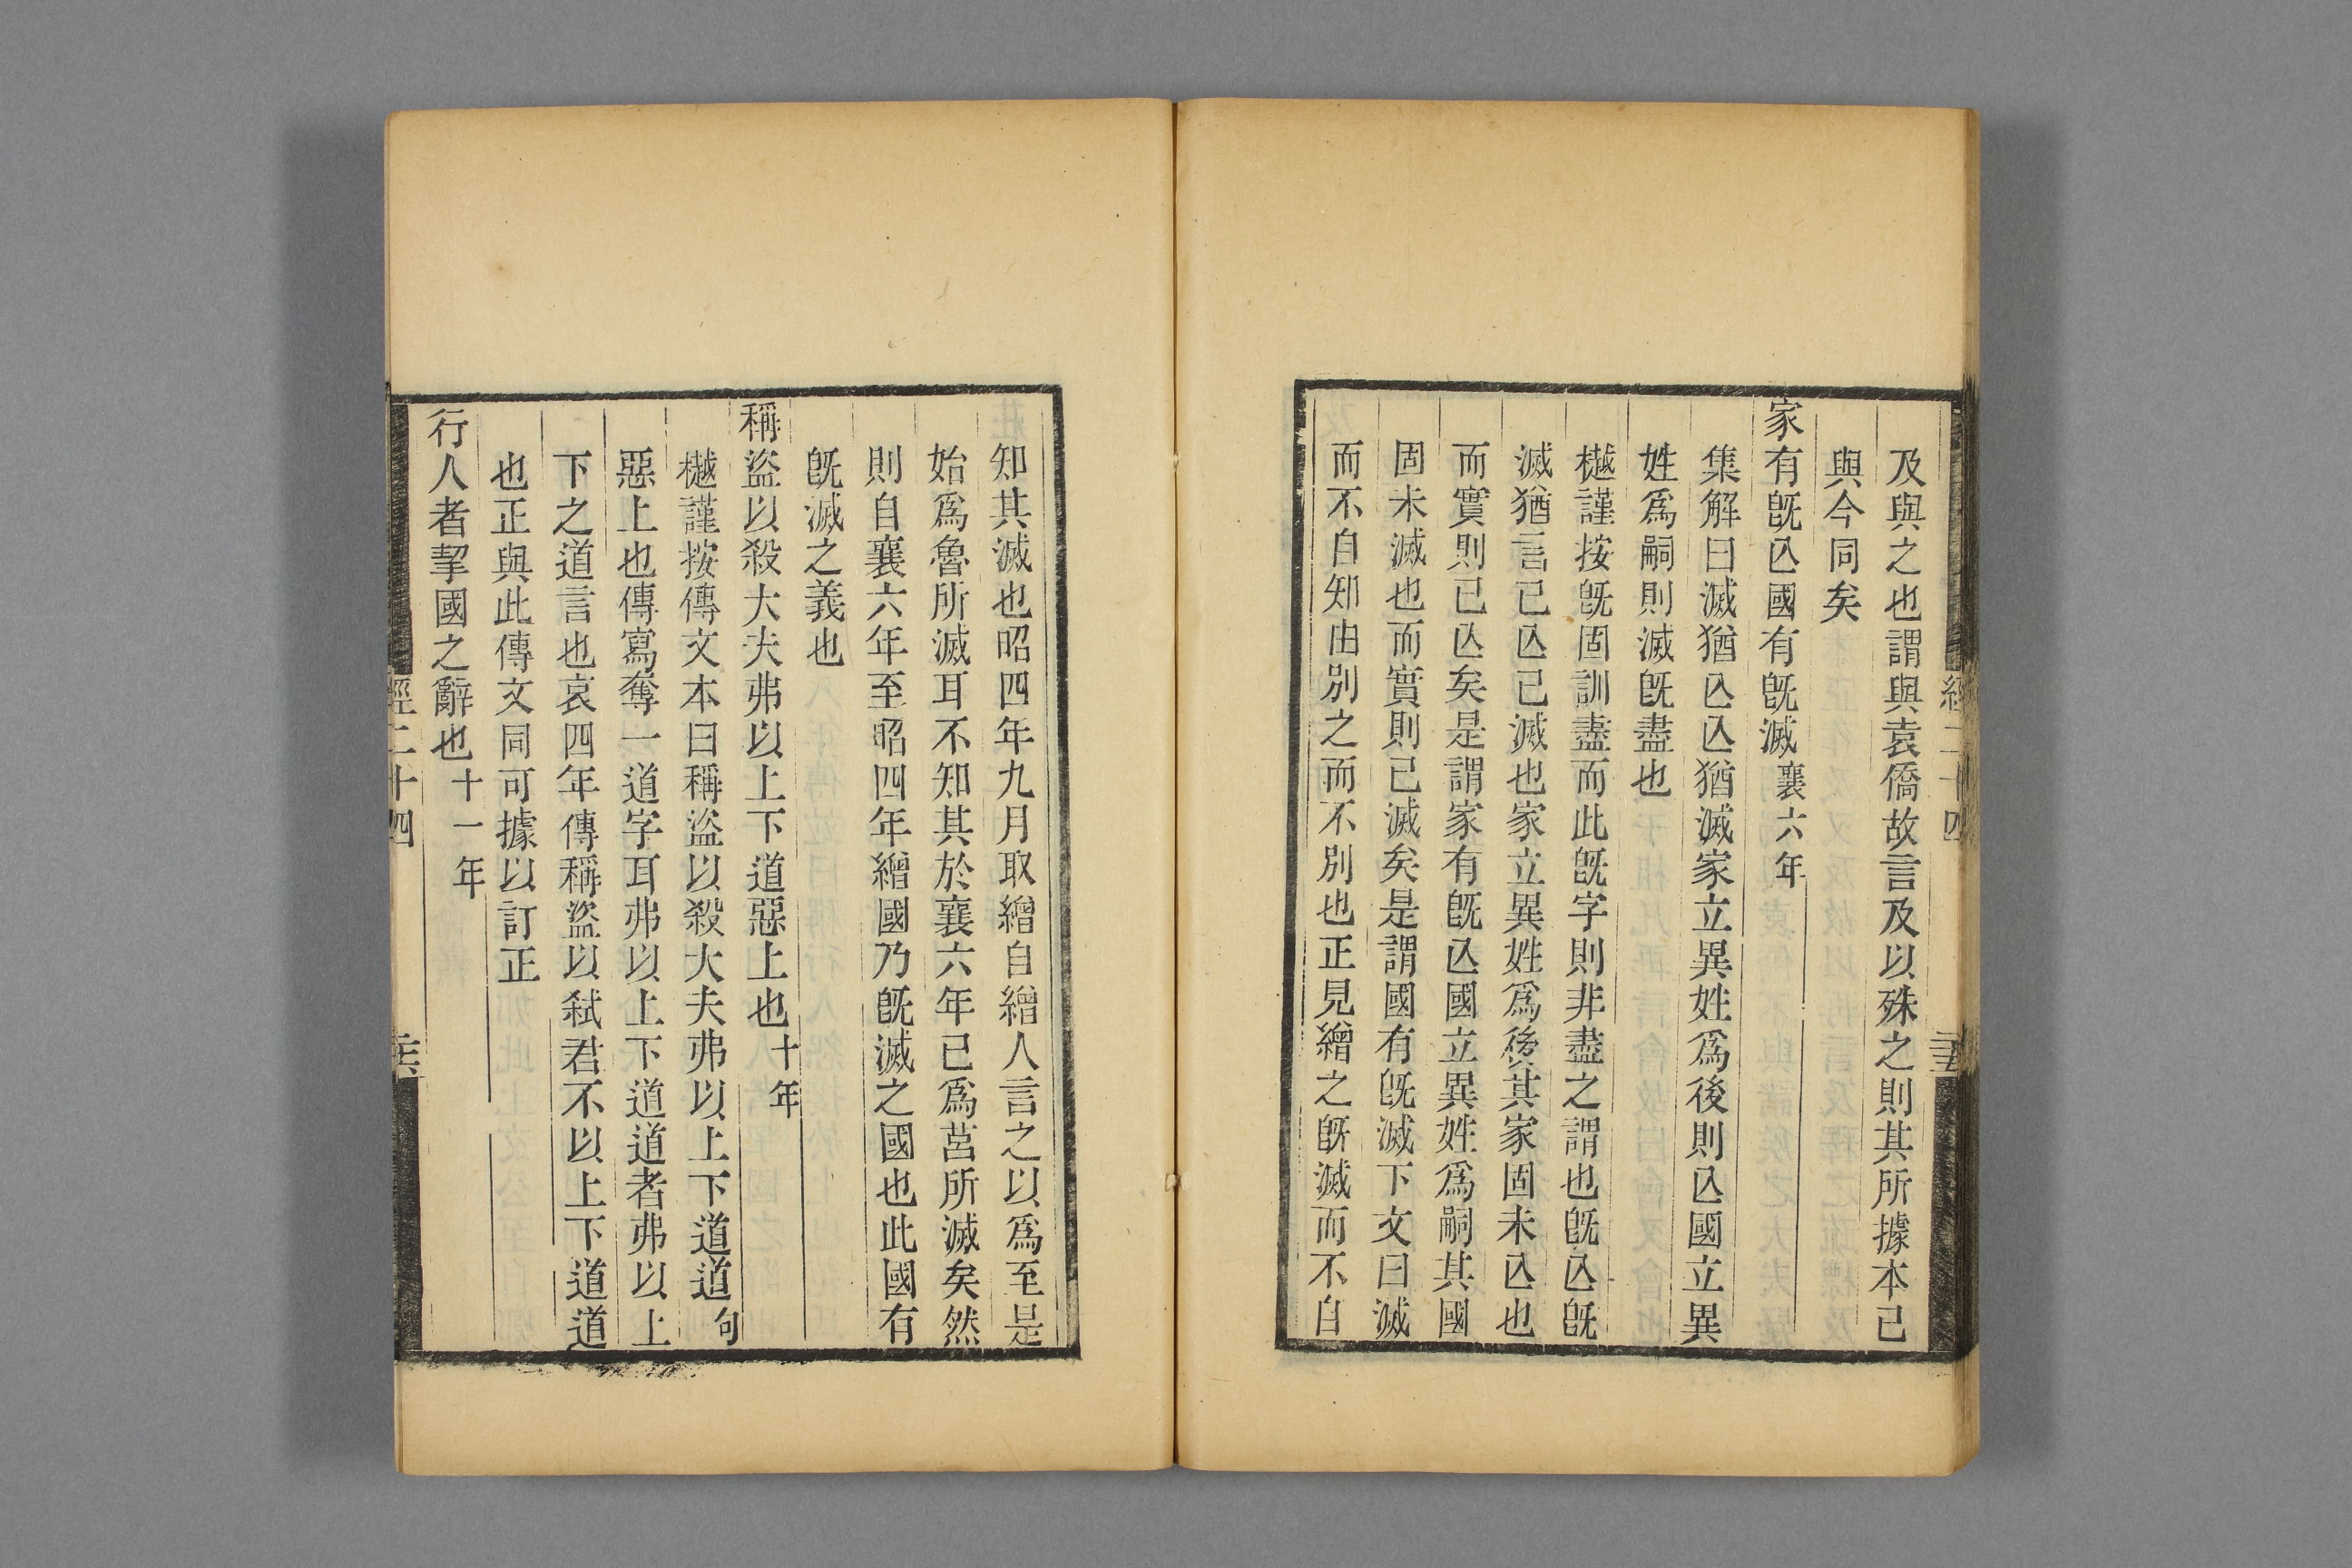 及與之也謂與袁僑故言及以殊之則其所據本已
與今同矣
家有旣亾國有旣滅襄六年
集解曰滅猶亾亾猶滅家立異姓爲後則亾國立異
姓爲嗣則滅旣盡也
樾謹按旣固訓盡而此旣字則非盡之謂也旣亾旣
滅猶言已亾已滅也家立異姓爲後其家固未亾也
而實則已亾矣是謂家有旣亾國立異姓爲嗣其國
固未滅也而實則已滅矣是謂國有旣滅下文曰滅
而不自知由別之而不別也正見繒之旣滅而不自
知其滅也昭四年九月取繒自繒人言之以爲至是
始爲魯所滅耳不知其於襄六年已爲莒所滅矣然
則自襄六年至昭四年繒國乃旣滅之國也此國有
旣滅之義也
稱盜以殺大夫弗以上下道惡上也十年
樾謹按傳文本曰稱盜以殺大夫弗以上下道道句
惡上也傳寫奪一道字耳弗以上下道道者弗以上
下之道言也哀四年傳稱盜以弑君不以上下道道
也正與此傳文同可據以訂正
行人者挈國之辭也十一年
經二十四